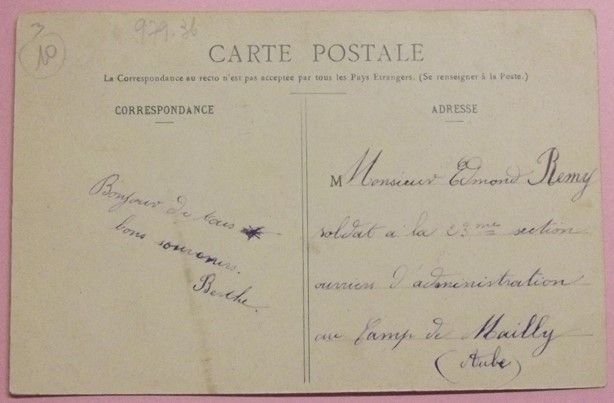 979.36
CARTE POSTALE
La Correspondance au recto n'est pas acceptée par tous les Pays Etrangers. (Se renseigner à la Poste.)
CORRESPONDANCE
Bonjour de tous
bons souvenirs.
Berthe.
ADRESSE
M Monsieur Edmond Remy
soldat à la 23me section
ouvriers d'administration
au Camp de Mailly
(Aube)